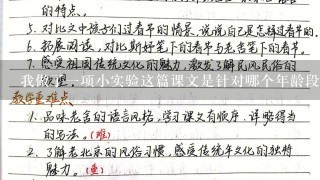 的特点。
5. 对比文中孩子们过春节的情景,说说自己是怎样过春节的。
6. 拓展阅读,对比斯妤笔下的春节与老舍笔下的春节。
7. 感受祖国传统文化的魅力,激发了解民风民俗的
我做了一项小实验这篇课文是针对哪个年龄段
教学重难点
1. 品味老舍的语言风格,学习课文有顺序、详略得当
的写法。(难)
2. 了解老北京的风俗习惯,感受传统年文化的独特
魅力。(重)